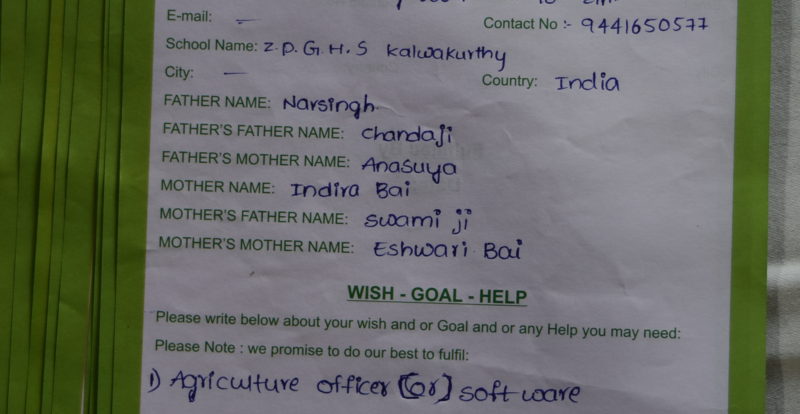 E-mail: –
Contact No :- 9441650577
School Name: Z.P.G.H.S Kalwakurthy
City: –
Country: India
FATHER NAME: Narsingh.
FATHER'S FATHER NAME: Chandaji
FATHER'S MOTHER NAME: Anasuya
MOTHER NAME: Indira Bai
MOTHER'S FATHER NAME: Swami ji
MOTHER'S MOTHER NAME: Eshwari Bai
WISH - GOAL - HELP
Please write below about your wish and or Goal and or any Help you may need:
Please Note : we promise to do our best to fulfil:
1) Agriculture officer [(or] software